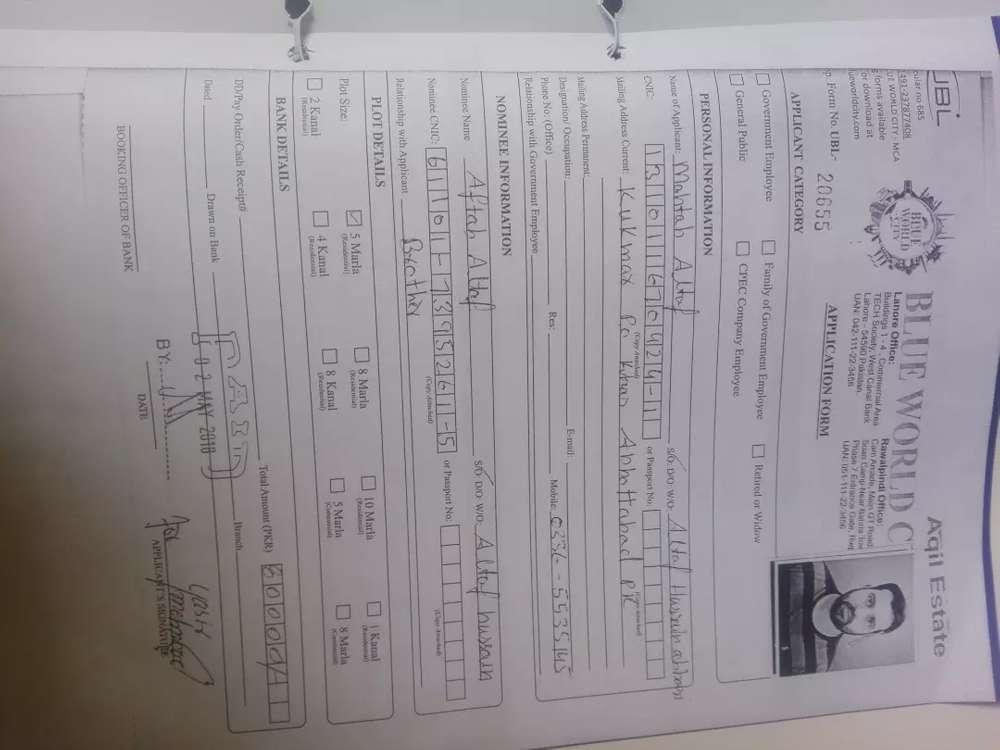 UBL
BLUE WORLD C
Aqil Estate
BLUE
WORLD
CITY
ular no 685
491-237877408
ut: WORLD CITY - MCA
g forms available
or download at
lueworldcity.com
Lahore Office:
Buildings 1 - 4, Commercial Area
TECH Society, West Canal Bank
Lahore - 54590 Pakistan.
UAN: 042-111-22-3456
Rawalpindi Office:
Cam Arcade, Main GT Road
UAN: 051-111-22-3456
p. Form No. UBL- 20655
APPLICATION FORM
APPLICANT CATEGORY
Government Employee
Family of Government Employee
Retired or Widow
General Public
CPEC Company Employee
PERSONAL INFORMATION
Name of Applicant: Mahtab Altaf S/O: D/O: W/O: Altaf
CNIC: or Passport No:
(Copy Attached) (Copy Attached)
Mailing Address Current: Abbottabad
Mailing Address Permanent:
Designation/ Occupation: E-mail:
Phone No: (Office) Res: Mobile: 0336-5535145
Relationship with Government Employee
NOMINEE INFORMATION
Nominee Name Aftab Altaf S/O: D/O: W/O: Altaf Hussain
Nominee CNIC: or Passport No:
(Copy Attached) (Copy Attached)
Relationship with Applicant Brother
PLOT DETAILS
Plot Size: 5 Marla 8 Marla 10 Marla 1 Kanal
(Residential) (Residential) (Residential) (Residential)
2 Kanal 4 Kanal 8 Kanal 5 Marla 8 Marla
(Residential) (Residential) (Residential) (Commercial) (Commercial)
BANK DETAILS
DD/Pay Order/Cash Receipt# Total Amount (PKR)
Dated Drawn on Bank Branch
PAID
02 MAY 2018
BY:
BOOKING OFFICER OF BANK
DATE
APPLICANT'S SIGNATURE